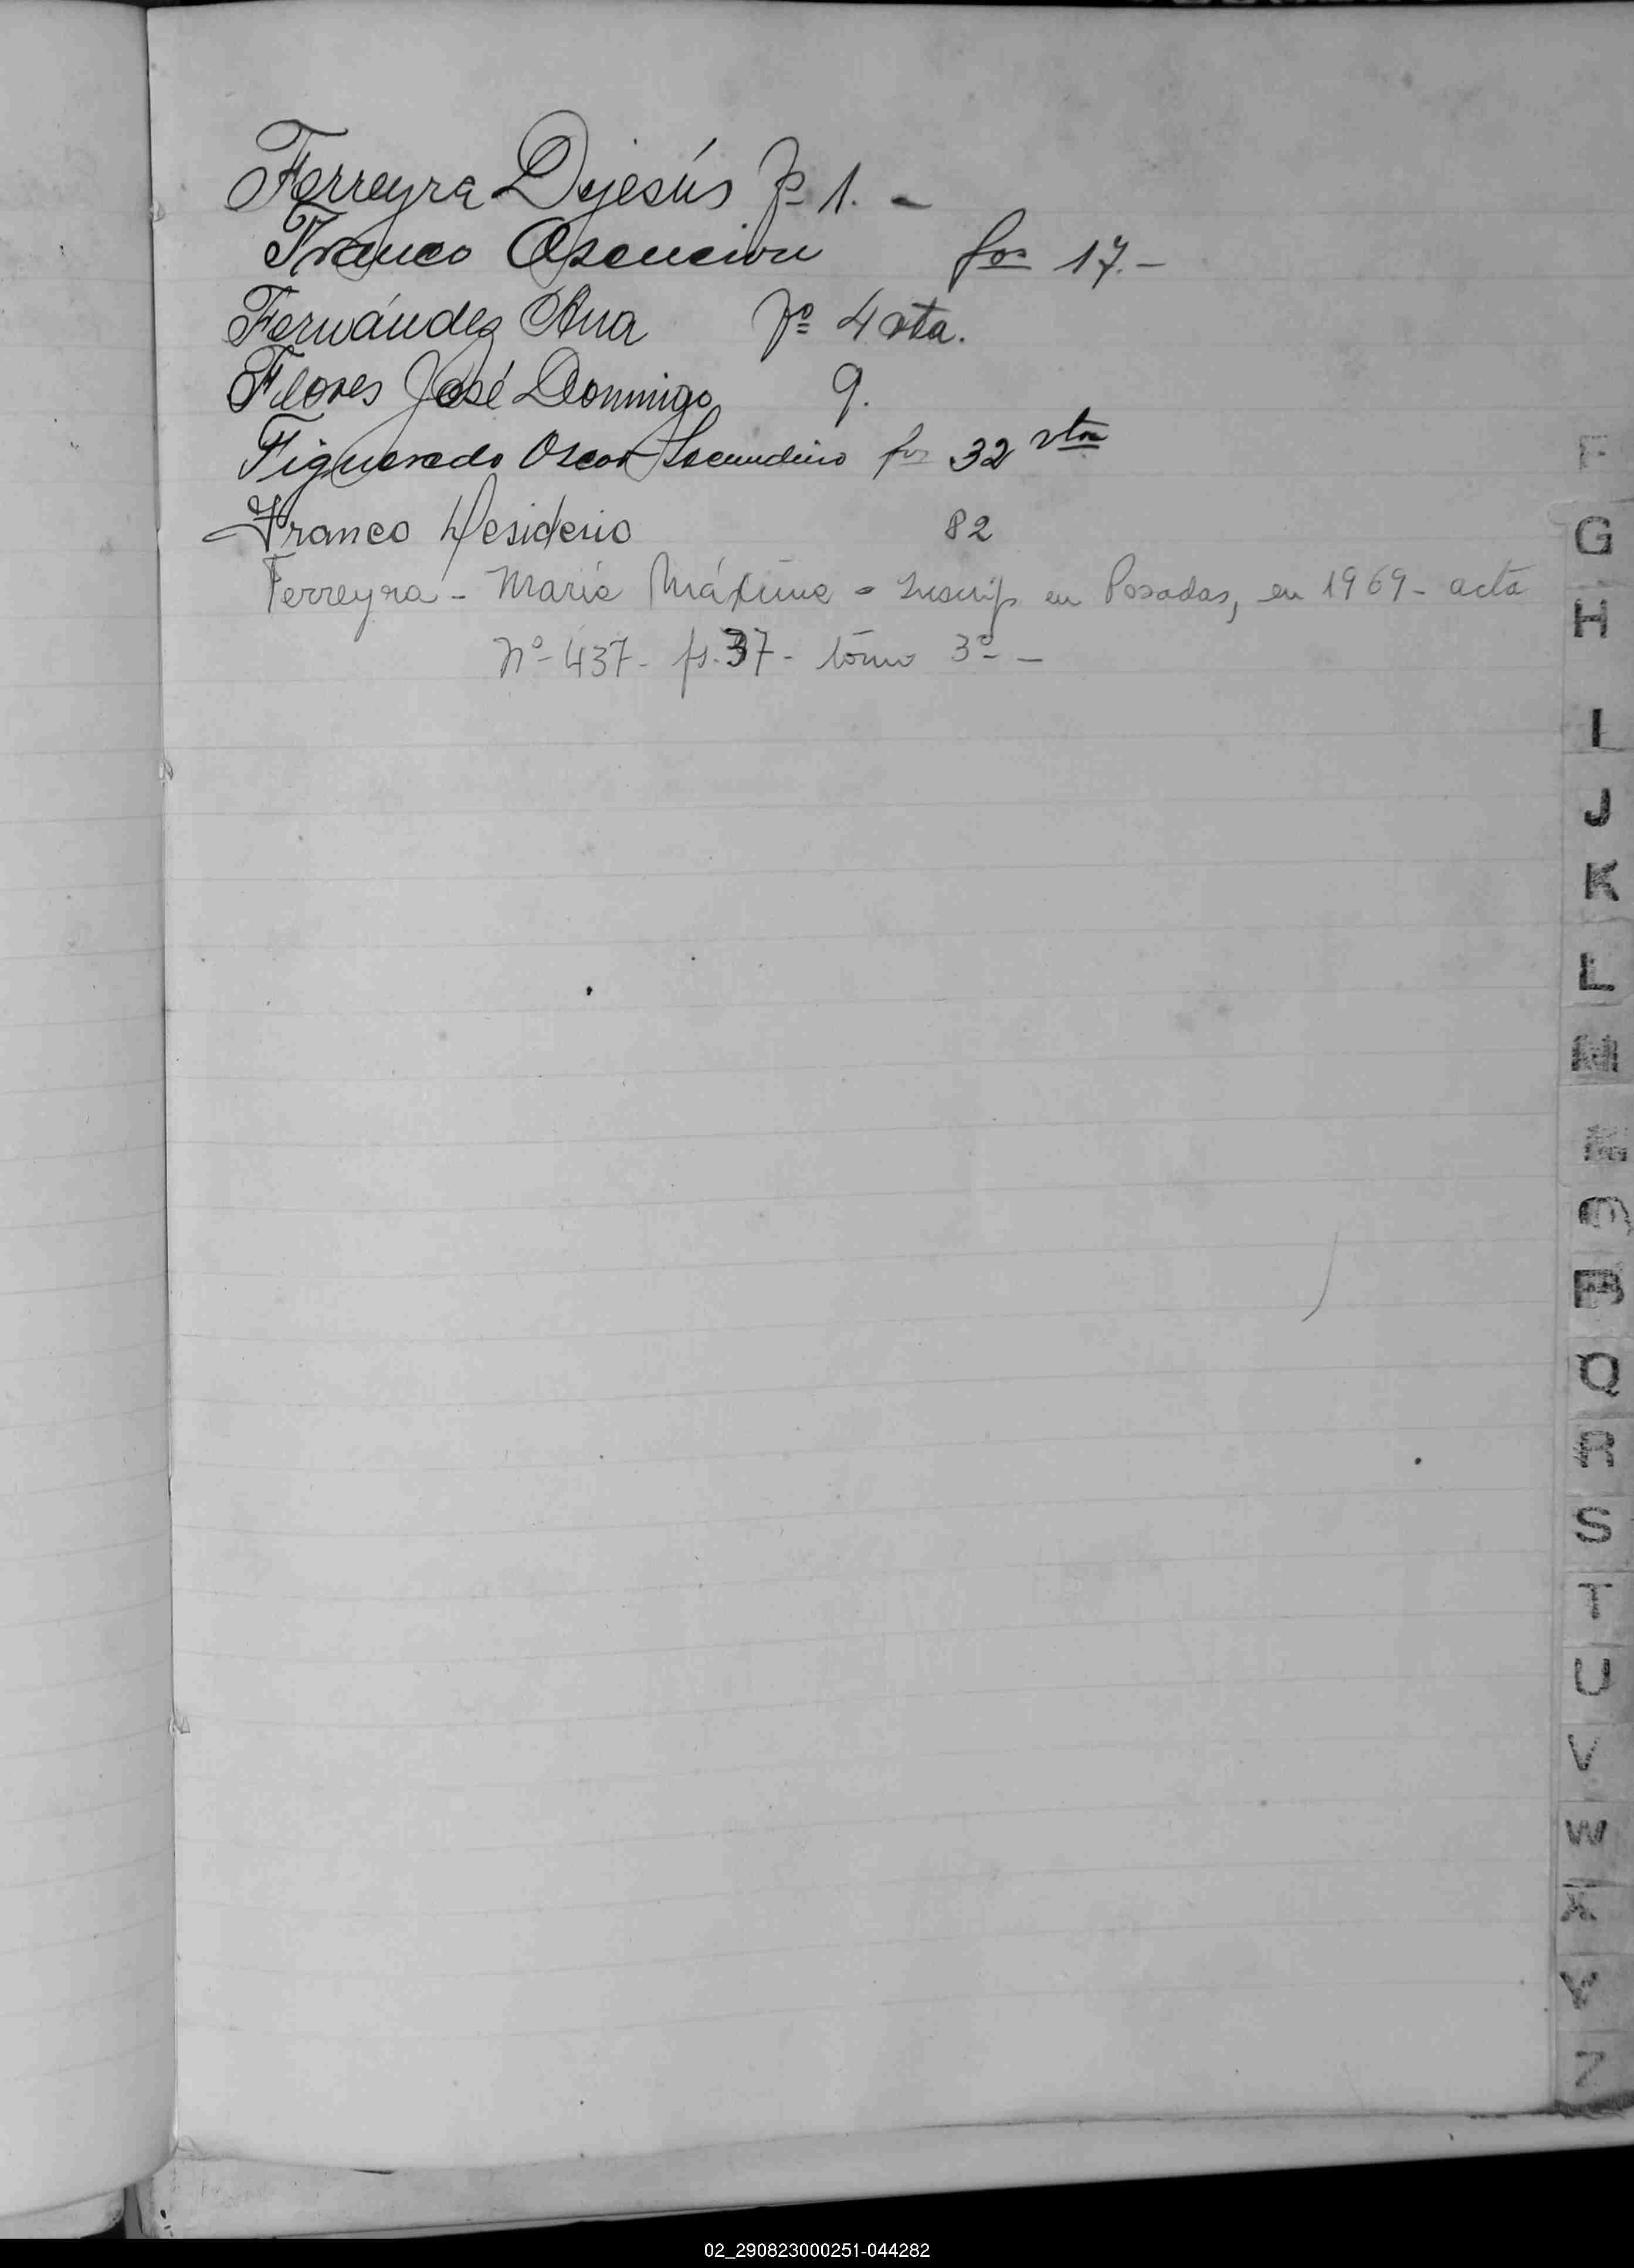 Ferreyra Dejesús fº 1. -
Franco Asencion fos 17.-
Fernández Ana fº 4 vta.
Flores José Domingo 9.
Figueredo Oscar Secundino fos 32 vta
Franco Desiderio 82
Ferreyra - María Máxima - Inscrip en Posadas, en 1969 - acta
Nº 437 - fs. 37 - tomo 3º - -
F
G
H
I
J
K
L
M
P
Q
R
S
T
U
V
W
X
Y
Z
02_290823000251-044282